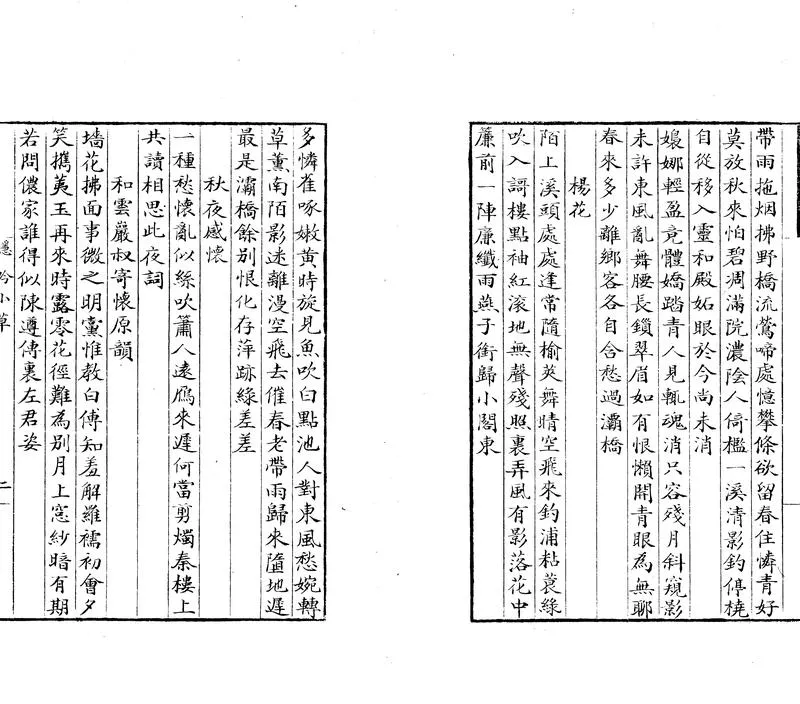 帶雨拖烟拂野橋流鶯啼處憶攀條欲留春住憐青好
莫放秋來怕碧凋滿院濃陰人倚檻一溪清影釣停橈
自從移入靈和殿妬眼於今尚未消
嬝娜輕盈竞體嬌踏青人見輒魂消只容殘月斜窺影
未許東風亂舞腰長鎖翠眉如有恨懶開青眼為無聊
春來多少離鄉客各自含愁過灞橋
楊花
陌上溪頭處處逢常隨榆莢舞晴空飛來釣浦粘蓑綠
吹入謌樓點袖紅滾地無聲殘照裏弄風有影落花中
簾前一陣廉纖雨燕子銜歸小閣東
多憐雀啄嫩黄時旋見魚吹白點池人對東風愁婉轉
草薰南陌影迷離漫空飛去催春老帶雨歸來墮地遲
最是灞橋餘别恨化存萍跡綠差差
秋夜感懷
一種愁懷亂似絲吹簫人遠鴈來遲何當剪燭秦樓上
共讀相思此夜詞
和雲巖叔寄懷原韻
墙花拂面事微之明黨惟教白傅知羞解羅襦初會夕
笑攜荑玉再來時露零花徑難為别月上窓紗暗有期
若問儂家誰得似陳遵傳裏左君姿
吟小草
二